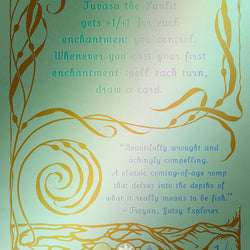 Tuvasa the Sunlit
gets +1/+1 for each
enchantment you control.
Whenever you cast your first
enchantment spell each turn,
draw a card.
"Beautifully wrought and
achingly compelling.
A classic coming-of-age romp
that delves into the depths of
what it really means to be fish."
—Troyan, Gutsy Explorer
1/